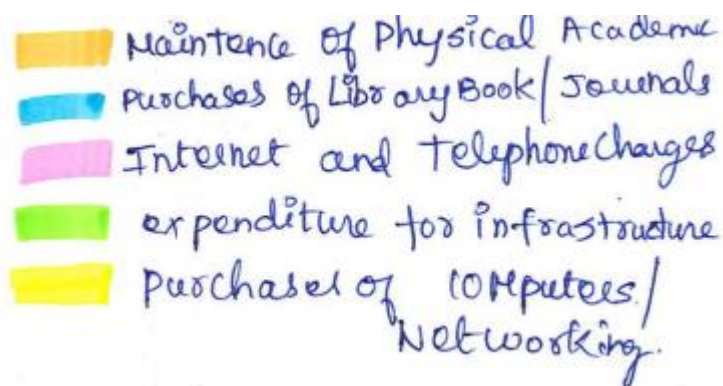 Maintence of Physical Academic
Purchases of Library Book/Journals
Internet and Telephone Charges
expenditure for infrastructure
Purchases of Computers/
Networking.